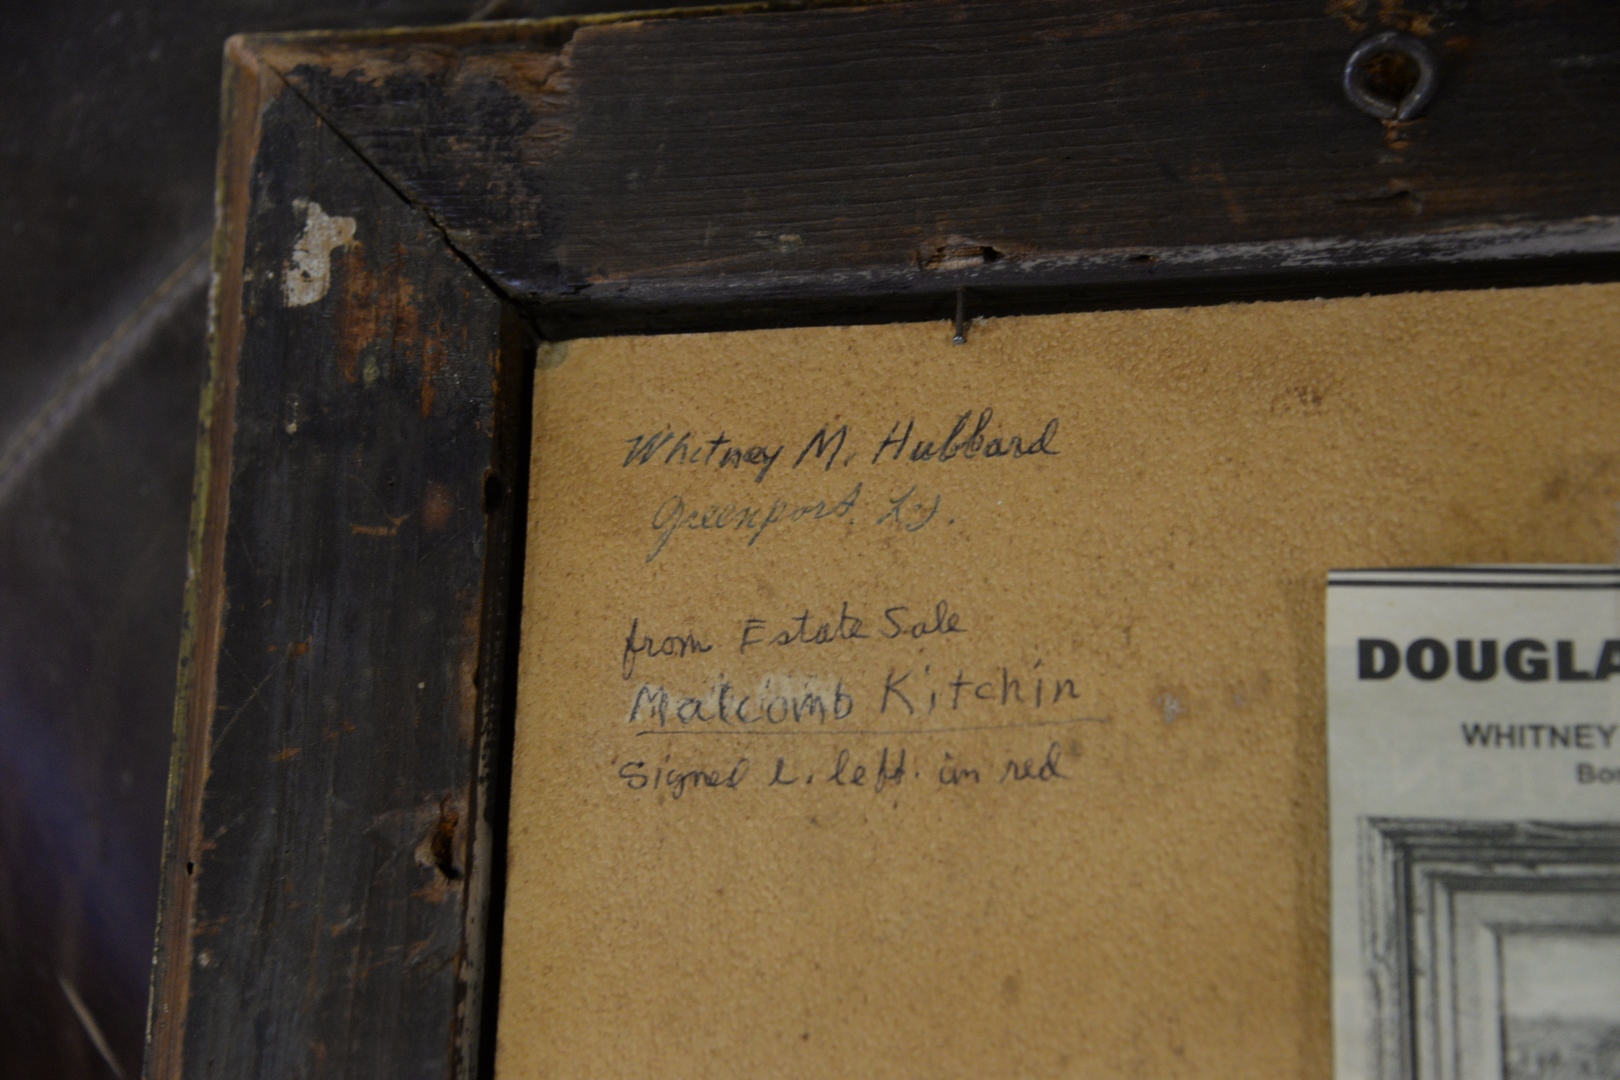 Whitney M. Hubbard
Greenport L.I.
from Estate Sale
Malcomb Kitchin
Signed L. left. in red
DOUGLA
WHITNEY
Bor